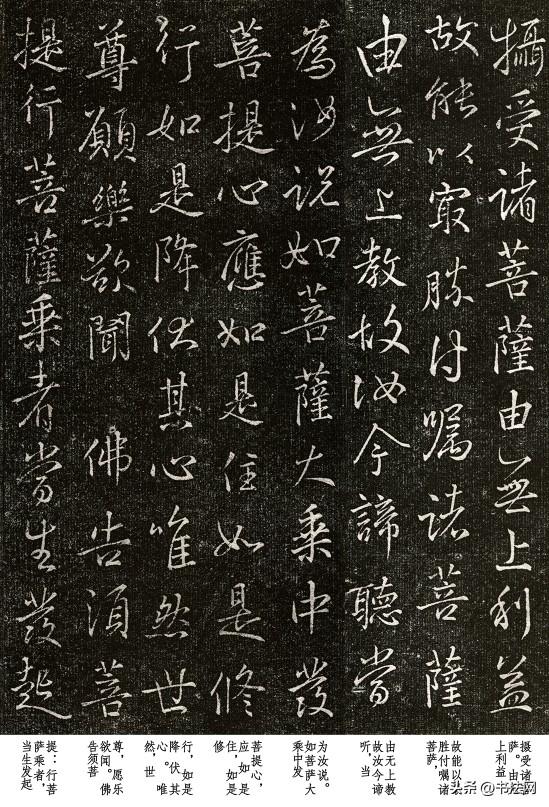 攝受諸菩薩由無上利益
故能以冣勝付嘱諸菩薩
由無上教故汝今諦聽當
為汝説如菩薩大乘中發
菩提心應如是住如是修
行如是降伏其心唯然世
尊願樂欲聞 佛告須菩
提行菩薩乘者當生發起
摄受诸
萨。由
上利益
故能以
胜付嘱诸
菩萨，
由无上教
故汝今谛
听，当
为汝说。
如菩萨大
乘中发
菩提心，
应如是
住，如是
修
行，如是
降伏其
心。唯
然，世
尊，愿乐
欲闻。佛
告须菩
提：行菩
萨乘者，
当生发起
头条 @书法网